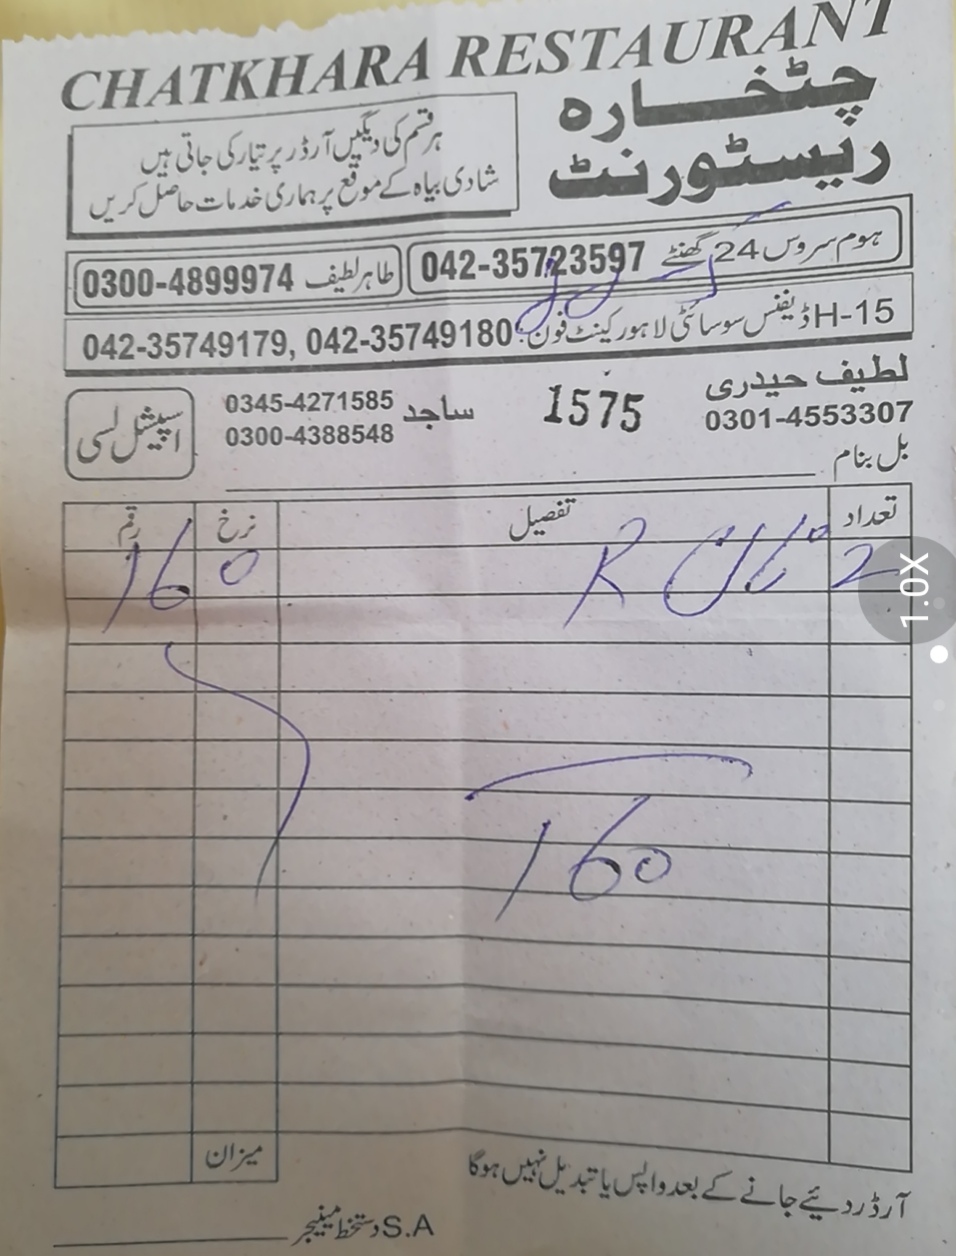 CHATKHARA RESTAURANT
چٹخارہ
ریسٹورنٹ
ہر قسم کی دیگیں آرڈر پر تیار کی جاتی ہیں
شادی بیاہ کے موقع پر ہماری خدمات حاصل کریں
ہوم سروس 24 گھنٹے 042-35723597
طاہر لطیف 0300-4899974
H-15 ڈیفنس سوسائٹی لاہور کینٹ فون: 042-35749179, 042-35749180
لطیف حیدری
0301-4553307
1575
ساجد 0345-4271585
0300-4388548
اسپیشل لسی
بل بنام
تعداد تفصیل نرخ رقم
2 R 160
160
میزان
آرڈر دئیے جانے کے بعد واپس یا تبدیل نہیں ہوگا
S.A دستخط مینیجر
1.0X